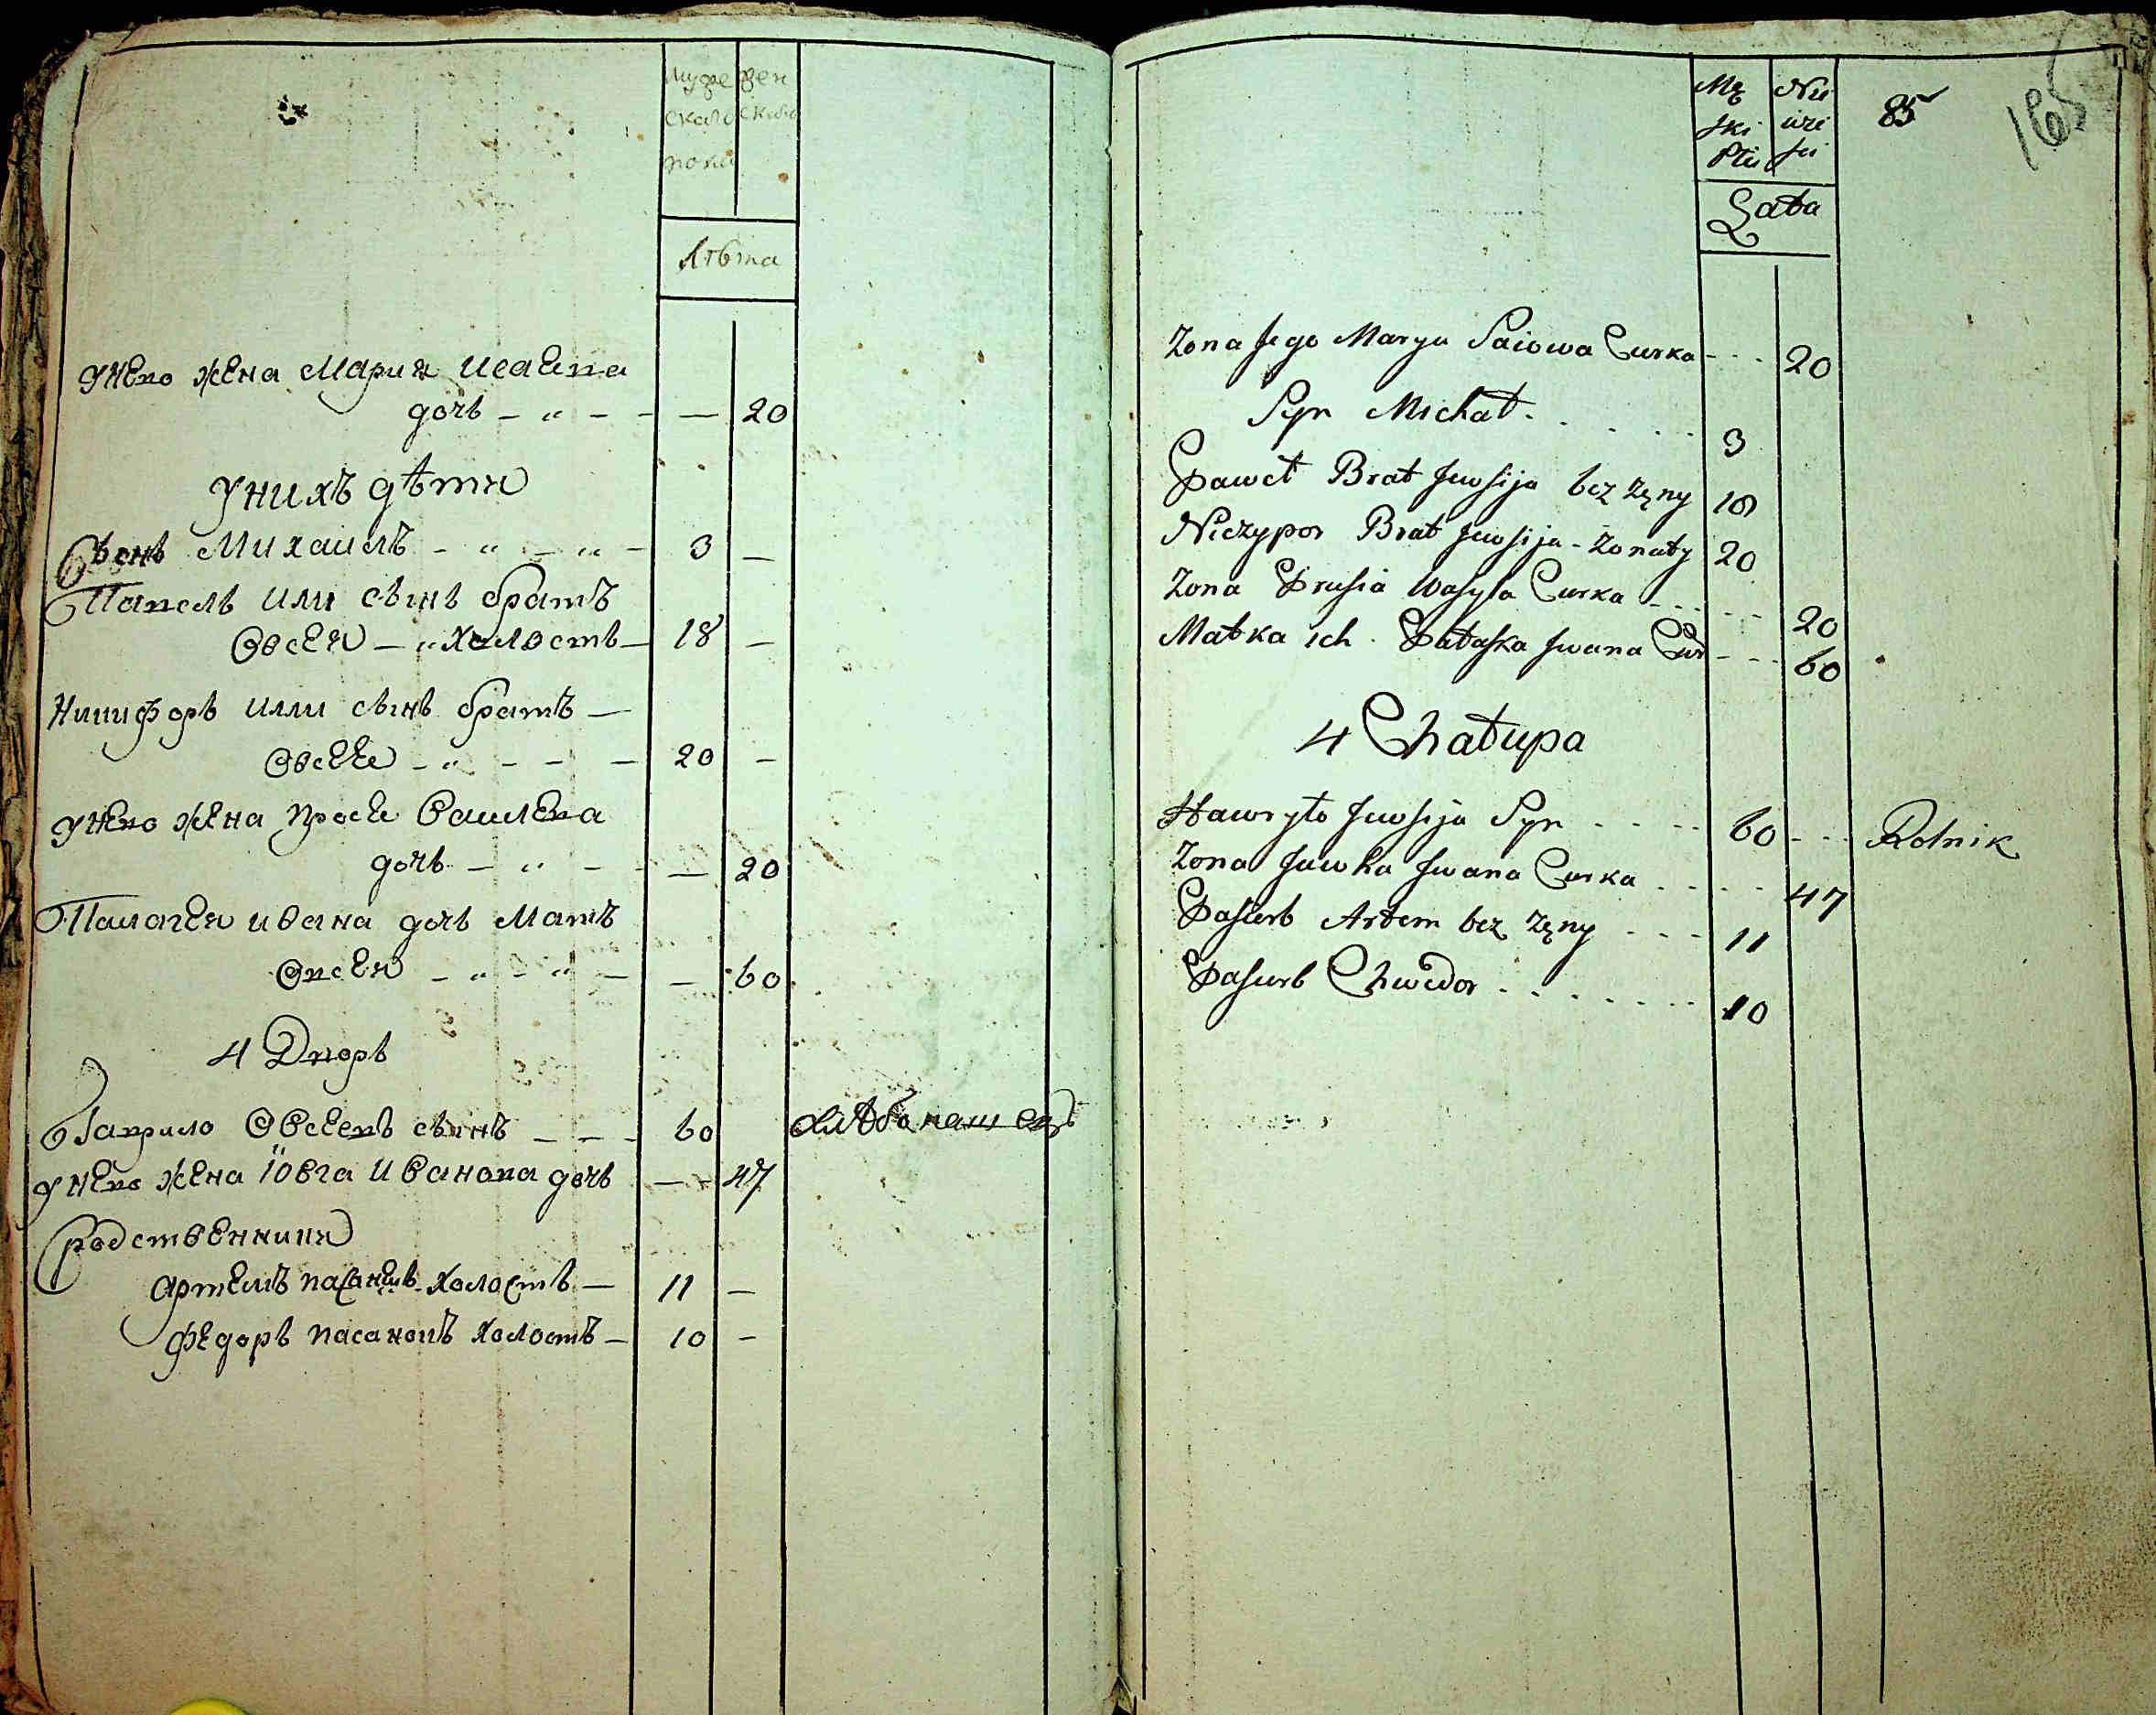 муже жен
скаго скаго
полу
лѣта
унево жена Мария Исаева
дочь - " - - — 20
унихъ дѣти
Сынъ Михаилъ - " - " - 3 —
Павелъ Или сынъ братъ
Овсея - " холостъ - 18 —
Ничифоръ Илли сынъ братъ —
Овсея - " - - - 20 —
унево жена Прося Васил​ева
дочь - " - - — 20
Палагея ивана дочь Мать
Овсея - " - " - — 60
4 Дворъ
Гаврило Овсеевъ сынъ - - - 60 хлѣбопашецъ
унево жена Ювга Иванова дочь — 47
Сродственники
Артемъ пасанокъ холостъ — 11 —
Федоръ пасанокъ холостъ - 10 -
Mę Nie
ski wie
Płci sci
Lata
85
165
Zona Jego Marya Saiowa Curka - - - 20
Syn Michał . . . . . 3
Paweł Brat Jewsija bez żęny 18
Niczypor Brat Jewsija - Zonaty 20
Zona Prusia Wasyla Curka - - - - - 20
Matka ich Pałaska Jwana Cur - - - 60
4 Chałupa
Hawryło Jewsija Syn - - - - 60 - - - Rolnik
Zona Juwha Jwana Curka - - - - 47
Pasierb Artem bez żęny - - - 11
Pasierb Chwedor - - - - - - - 10